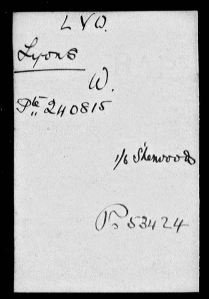 L V O.
Lyons
W.
Pte 240815
1/6 Sherwoods
P. 53424